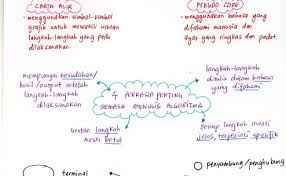 CARTA ALIR
- menggunakan simbol-simbol
grafik untuk mewakili urutan
langkah-langkah yang perlu
dilaksanakan.
PSEUDO CODE
- menggunakan bahasa yang
difahami manusia dan
ayat yang ringkas dan padat.
mempunyai kesudahan/
hasil/output setelah
langkah-langkah
dilaksanakan
langkah-langkah
ditulis dalam bahasa
yang difahami
4 PERKARA PENTING
SEMASA MENULIS ALGORITMA
urutan langkah
mesti betul
setiap langkah mesti
jelas, terperinci, spesifik
terminal
penyambung/penghubung